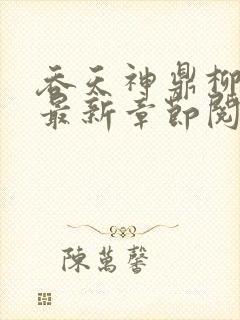 吞天神鼎柳
最新章節閱
陳萬馨